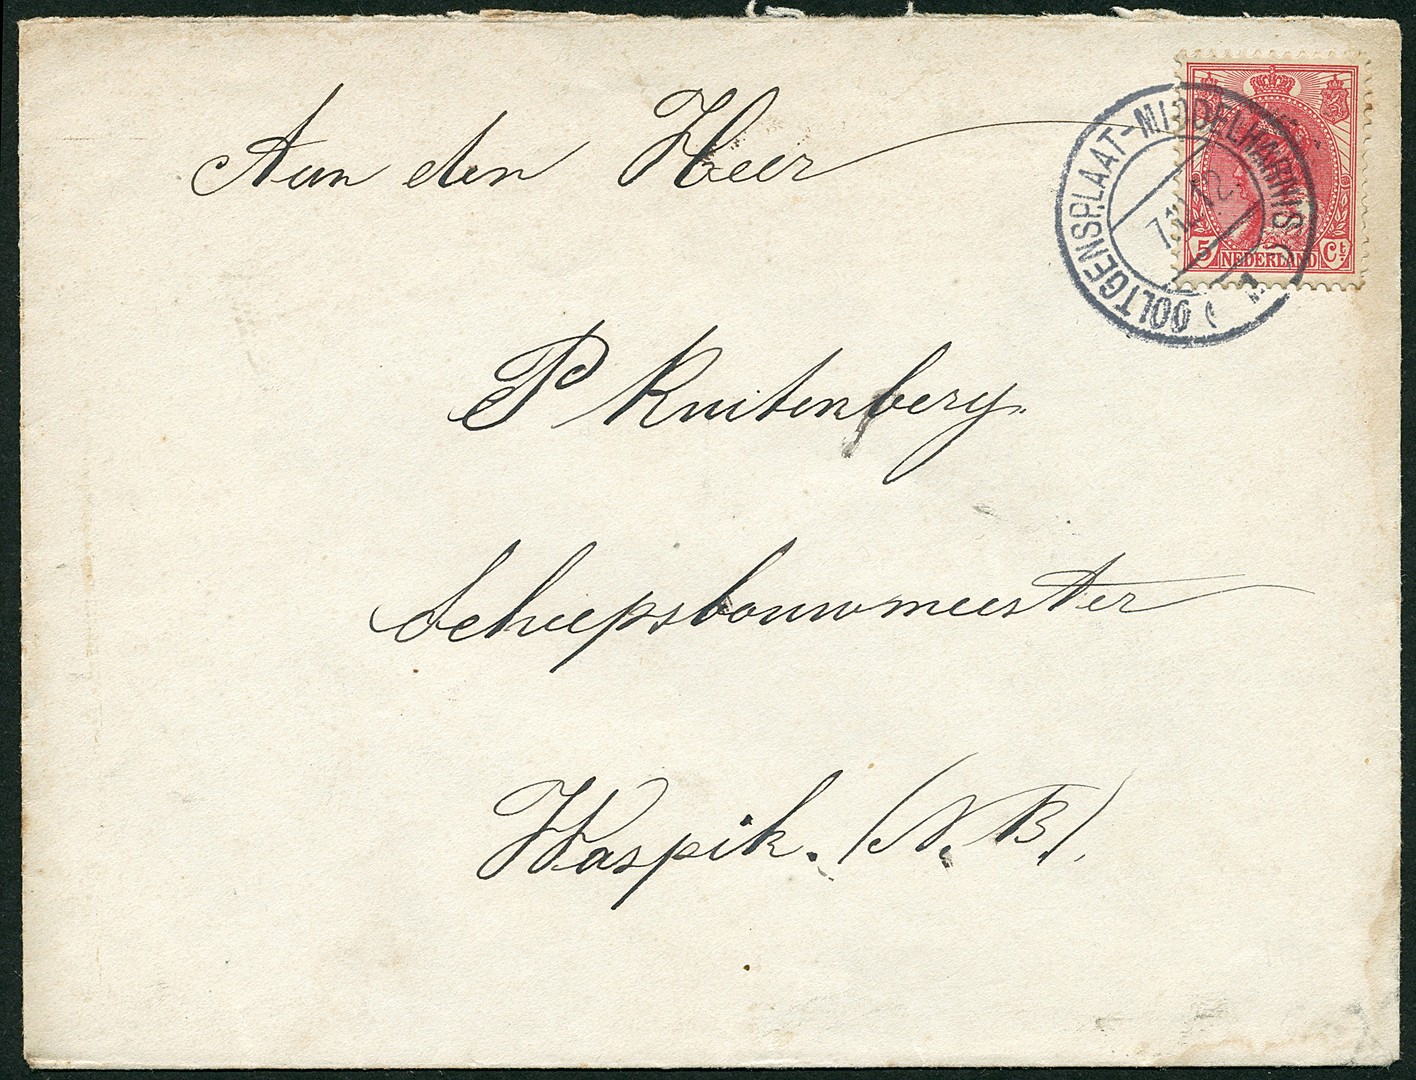 Aan den Heer
P Kuitenberg.
Scheepsbouwmeester
Waspik. (N. B.).
OOLTGENSPLAAT-MIDDELHARNIS
12
5 NEDERLAND Ct.